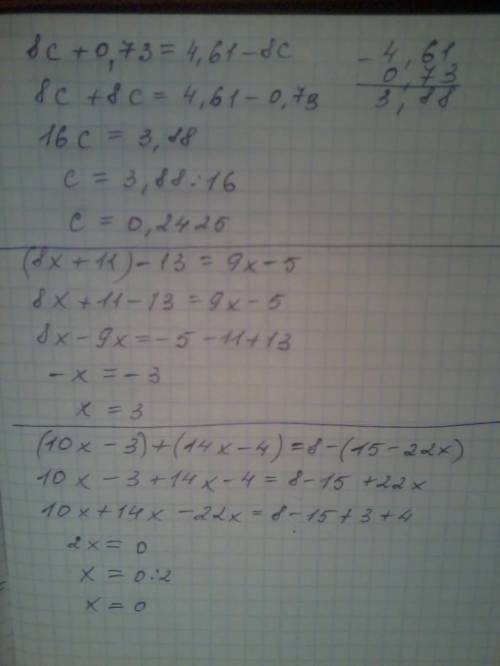 8c + 0,73 = 4,61 - 8c
8c + 8c = 4,61 - 0,73
16c = 3,88
c = 3,88 : 16
c = 0,2425
- 4,61
0,73
3,88
(8x + 11) - 13 = 9x - 5
8x + 11 - 13 = 9x - 5
8x - 9x = - 5 - 11 + 13
- x = - 3
x = 3
(10x - 3) + (14x - 4) = 8 - (15 - 22x)
10x - 3 + 14x - 4 = 8 - 15 + 22x
10x + 14x - 22x = 8 - 15 + 3 + 4
2x = 0
x = 0 : 2
x = 0